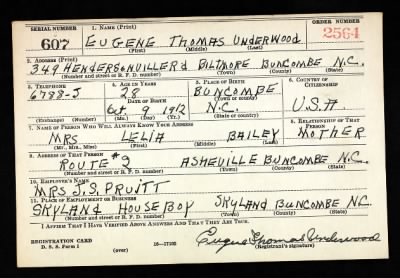 SERIAL NUMBER
1. NAME (Print)
ORDER NUMBER
607
EUGENE THOMAS UNDERWOOD
2564
(First) (Middle) (Last)
2. ADDRESS (Print)
349 HENDERSONVILLE RD BILTMORE BUNCOMBE N.C.
(Number and street or R. F. D. number) (Town) (County) (State)
3. TELEPHONE
4. AGE IN YEARS
5. PLACE OF BIRTH
6. COUNTRY OF CITIZENSHIP
6788-J
28
BUNCOMBE
DATE OF BIRTH
(Town or county)
Oct 9 1912
N.C.
U.S.A.
(Exchange) (Number)
(Mo.) (Day) (Yr.)
(State or country)
7. NAME OF PERSON WHO WILL ALWAYS KNOW YOUR ADDRESS
8. RELATIONSHIP OF THAT PERSON
MRS LELIA BAILEY
MOTHER
(Mr., Mrs., Miss) (First) (Middle) (Last)
9. ADDRESS OF THAT PERSON
ROUTE #3 ASHEVILLE BUNCOMBE N.C.
(Number and street or R. F. D. number) (Town) (County) (State)
10. EMPLOYER'S NAME
MRS J.S. PRUITT
11. PLACE OF EMPLOYMENT OR BUSINESS
SKYLAND HOUSE BOY SKYLAND BUNCOMBE NC
(Number and street or R. F. D. number) (Town) (County) (State)
I AFFIRM THAT I HAVE VERIFIED ABOVE ANSWERS AND THAT THEY ARE TRUE.
REGISTRATION CARD
D. S. S. Form 1
(over)
16—17105
Eugene Thomas Underwood
(Registrant's signature)